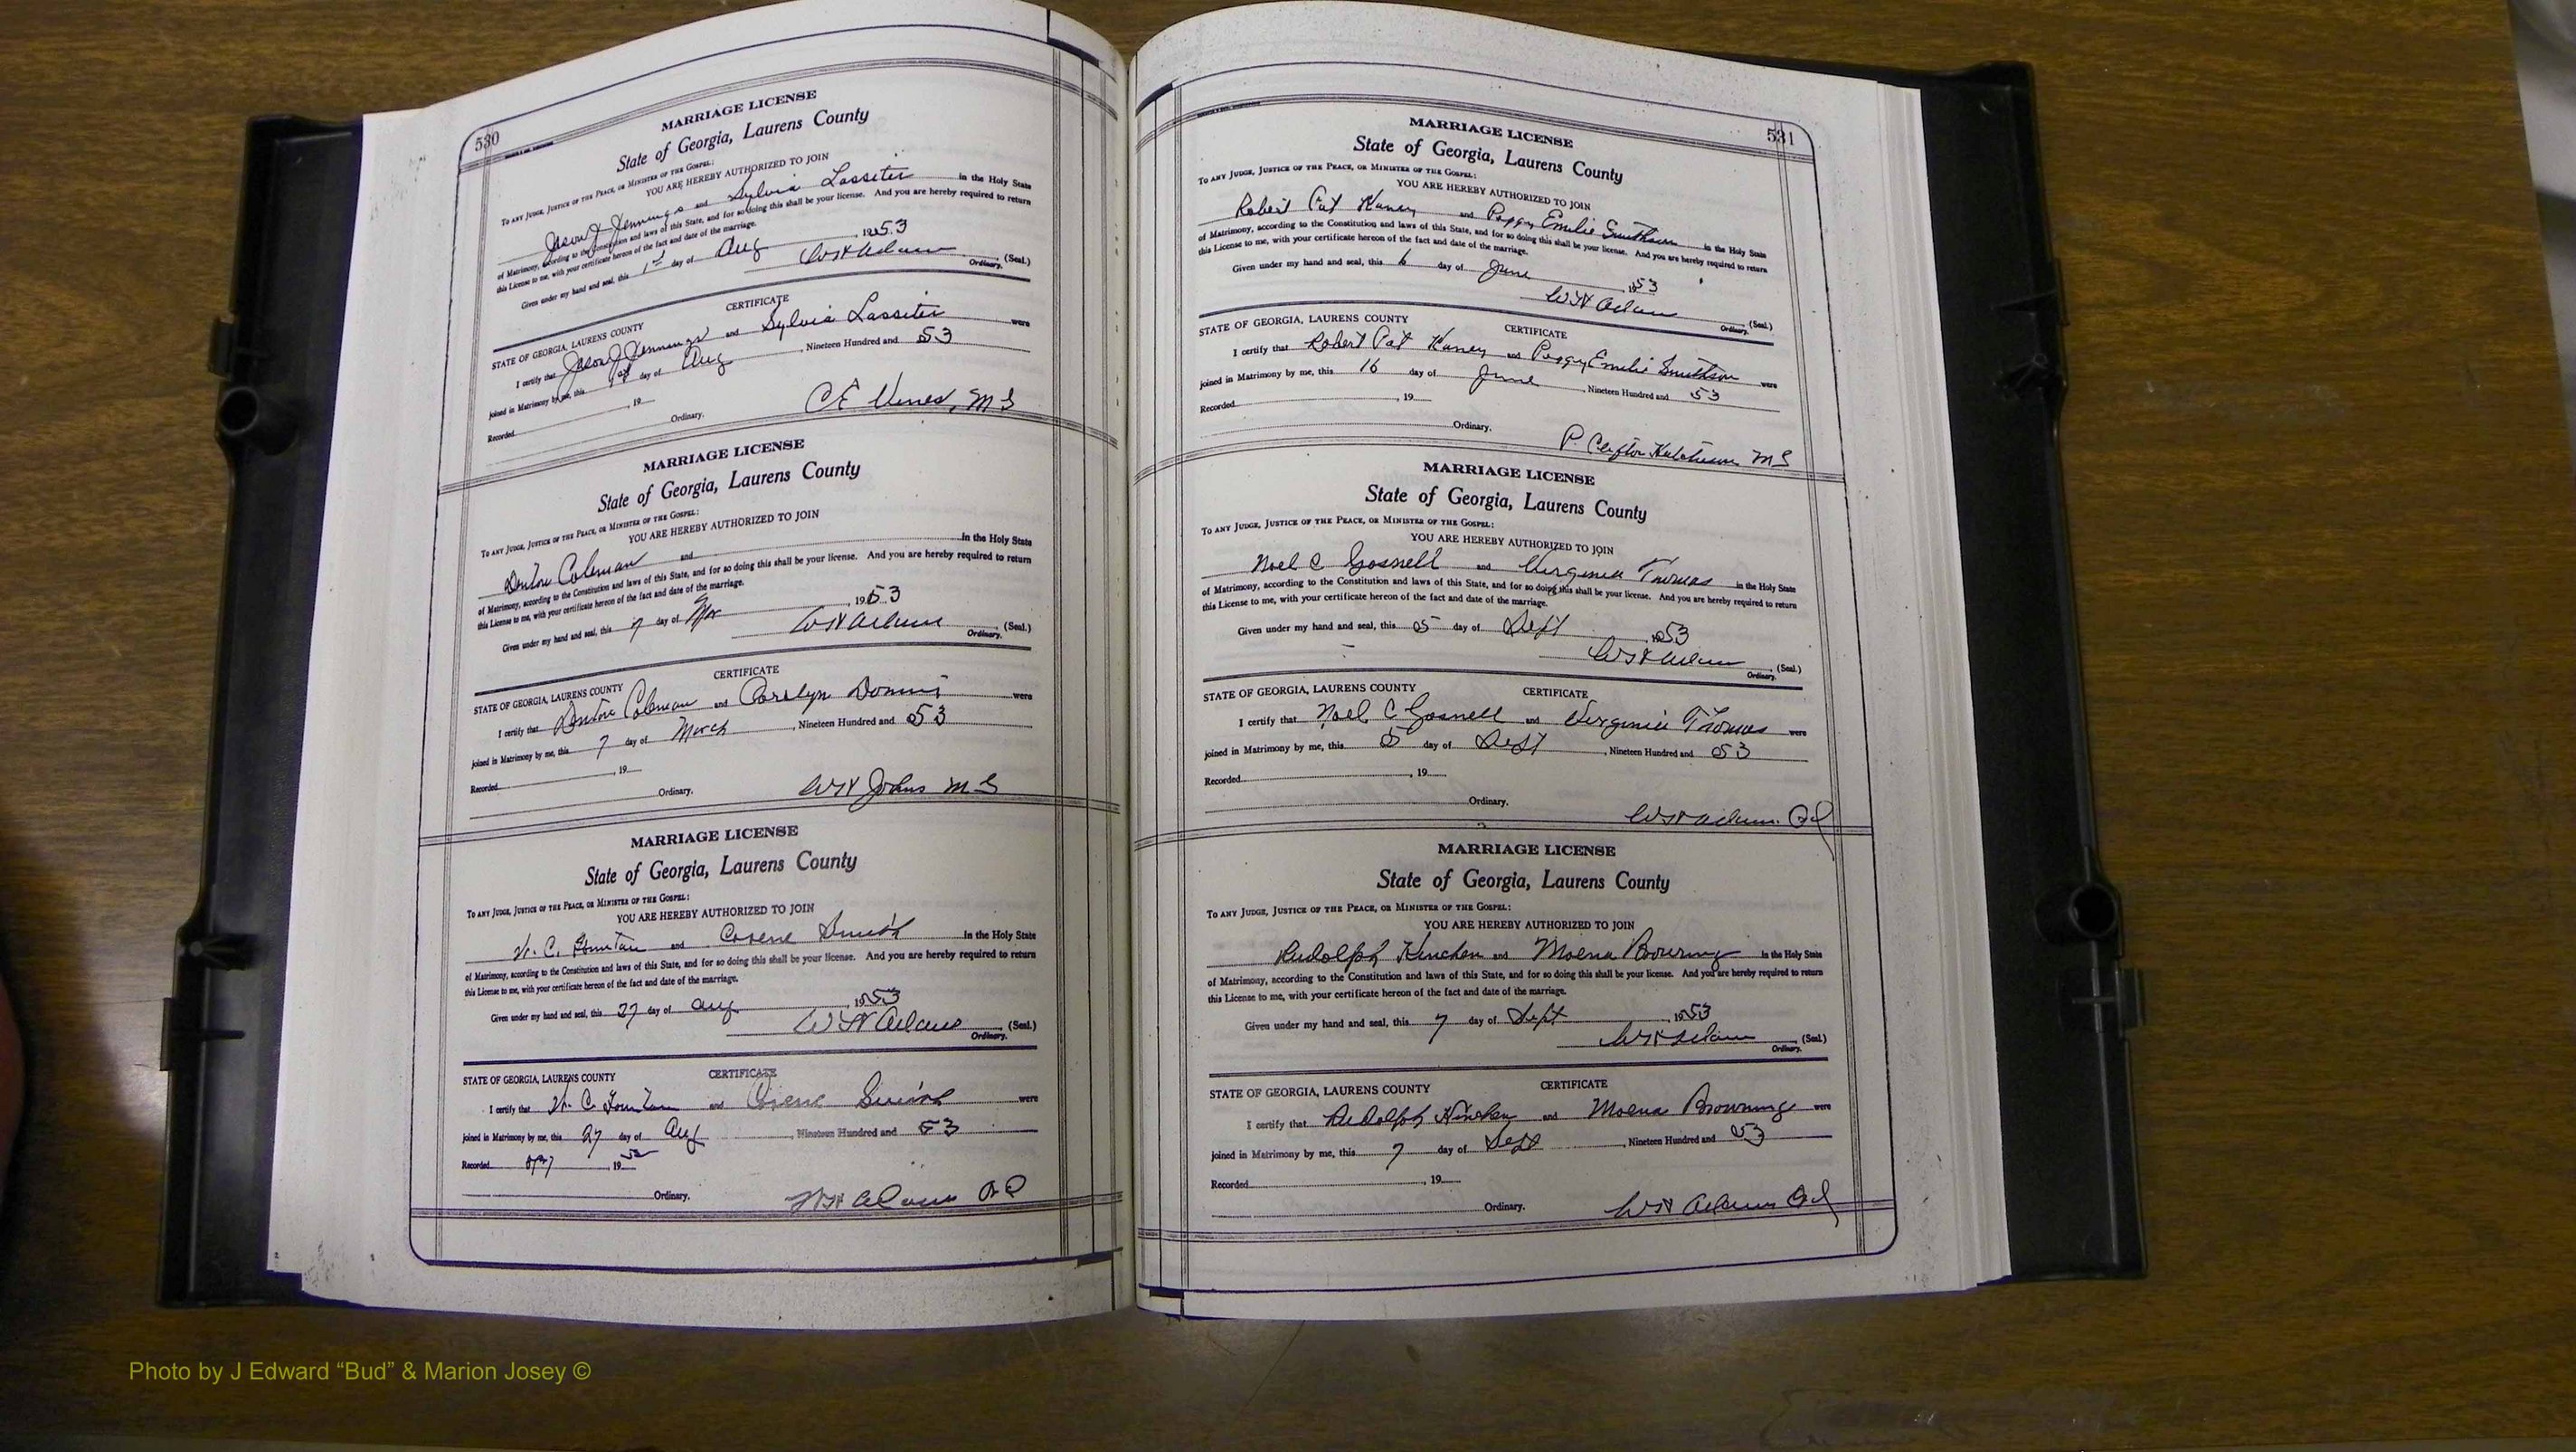 530
MARRIAGE LICENSE
State of Georgia, Laurens County
TO ANY JUDGE, JUSTICE OF THE PEACE, OR MINISTER OF THE GOSPEL:
YOU ARE HEREBY AUTHORIZED TO JOIN
Jason J Jennings and Sylvia Lassiter in the Holy State
of Matrimony, according to the Constitution and laws of this State, and for so doing this shall be your license. And you are hereby required to return
this License to me, with your certificate hereon of the fact and date of the marriage.
Given under my hand and seal, this 1st day of Aug, 1953
WH Adams (Seal.)
Ordinary.
CERTIFICATE
STATE OF GEORGIA, LAURENS COUNTY
I certify that Jason J Jennings and Sylvia Lassiter were
joined in Matrimony by me, this 1st day of Aug, Nineteen Hundred and 53
Recorded, 19
Ordinary. C E Vines, MG
MARRIAGE LICENSE
State of Georgia, Laurens County
TO ANY JUDGE, JUSTICE OF THE PEACE, OR MINISTER OF THE GOSPEL:
YOU ARE HEREBY AUTHORIZED TO JOIN
Denton Coleman and in the Holy State
of Matrimony, according to the Constitution and laws of this State, and for so doing this shall be your license. And you are hereby required to return
this License to me, with your certificate hereon of the fact and date of the marriage.
Given under my hand and seal, this 7 day of Mar, 1953
WH Adams (Seal.)
Ordinary.
CERTIFICATE
STATE OF GEORGIA, LAURENS COUNTY
I certify that Denton Coleman and Carolyn were
joined in Matrimony by me, this 7 day of March, Nineteen Hundred and 53
Recorded, 19
Ordinary. WH Johns MG
MARRIAGE LICENSE
State of Georgia, Laurens County
TO ANY JUDGE, JUSTICE OF THE PEACE, OR MINISTER OF THE GOSPEL:
YOU ARE HEREBY AUTHORIZED TO JOIN
C. Fountain and Corene Smith in the Holy State
of Matrimony, according to the Constitution and laws of this State, and for so doing this shall be your license. And you are hereby required to return
this License to me, with your certificate hereon of the fact and date of the marriage.
Given under my hand and seal, this 27 day of Aug, 1953
WH Adams (Seal.)
Ordinary.
STATE OF GEORGIA, LAURENS COUNTY CERTIFICATE
I certify that C Fountain and Corene Smith were
joined in Matrimony by me, this 27 day of Aug, Nineteen Hundred and 53
Recorded, 19
Ordinary. WH Adams Ord
531
MARRIAGE LICENSE
State of Georgia, Laurens County
TO ANY JUDGE, JUSTICE OF THE PEACE, OR MINISTER OF THE GOSPEL:
YOU ARE HEREBY AUTHORIZED TO JOIN
Robert Pat Haney and Peggy Emilie Smithson in the Holy State
of Matrimony, according to the Constitution and laws of this State, and for so doing this shall be your license. And you are hereby required to return
this License to me, with your certificate hereon of the fact and date of the marriage.
Given under my hand and seal, this 6 day of June, 1953
WH Adams (Seal.)
Ordinary.
STATE OF GEORGIA, LAURENS COUNTY CERTIFICATE
I certify that Robert Pat Haney and Peggy Emilie Smithson were
joined in Matrimony by me, this 16 day of June, Nineteen Hundred and 53
Recorded, 19
Ordinary. P. Clifton Hutcheson MG
MARRIAGE LICENSE
State of Georgia, Laurens County
TO ANY JUDGE, JUSTICE OF THE PEACE, OR MINISTER OF THE GOSPEL:
YOU ARE HEREBY AUTHORIZED TO JOIN
Noel C Gosnell and Virginia Thomas in the Holy State
of Matrimony, according to the Constitution and laws of this State, and for so doing this shall be your license. And you are hereby required to return
this License to me, with your certificate hereon of the fact and date of the marriage.
Given under my hand and seal, this 5 day of Sept, 1953
WH Adams (Seal.)
Ordinary.
STATE OF GEORGIA, LAURENS COUNTY CERTIFICATE
I certify that Noel C Gosnell and Virginia Thomas were
joined in Matrimony by me, this 5 day of Sept, Nineteen Hundred and 53
Recorded, 19
Ordinary. WH Adams Ord
MARRIAGE LICENSE
State of Georgia, Laurens County
TO ANY JUDGE, JUSTICE OF THE PEACE, OR MINISTER OF THE GOSPEL:
YOU ARE HEREBY AUTHORIZED TO JOIN
Rudolph Hinchen and Moena Browning in the Holy State
of Matrimony, according to the Constitution and laws of this State, and for so doing this shall be your license. And you are hereby required to return
this License to me, with your certificate hereon of the fact and date of the marriage.
Given under my hand and seal, this 7 day of Sept, 1953
WH Adams (Seal.)
Ordinary.
STATE OF GEORGIA, LAURENS COUNTY CERTIFICATE
I certify that Rudolph Hinchen and Moena Browning were
joined in Matrimony by me, this 7 day of Sept, Nineteen Hundred and 53
Recorded, 19
Ordinary. WH Adams Ord
Photo by J Edward “Bud” & Marion Josey ©